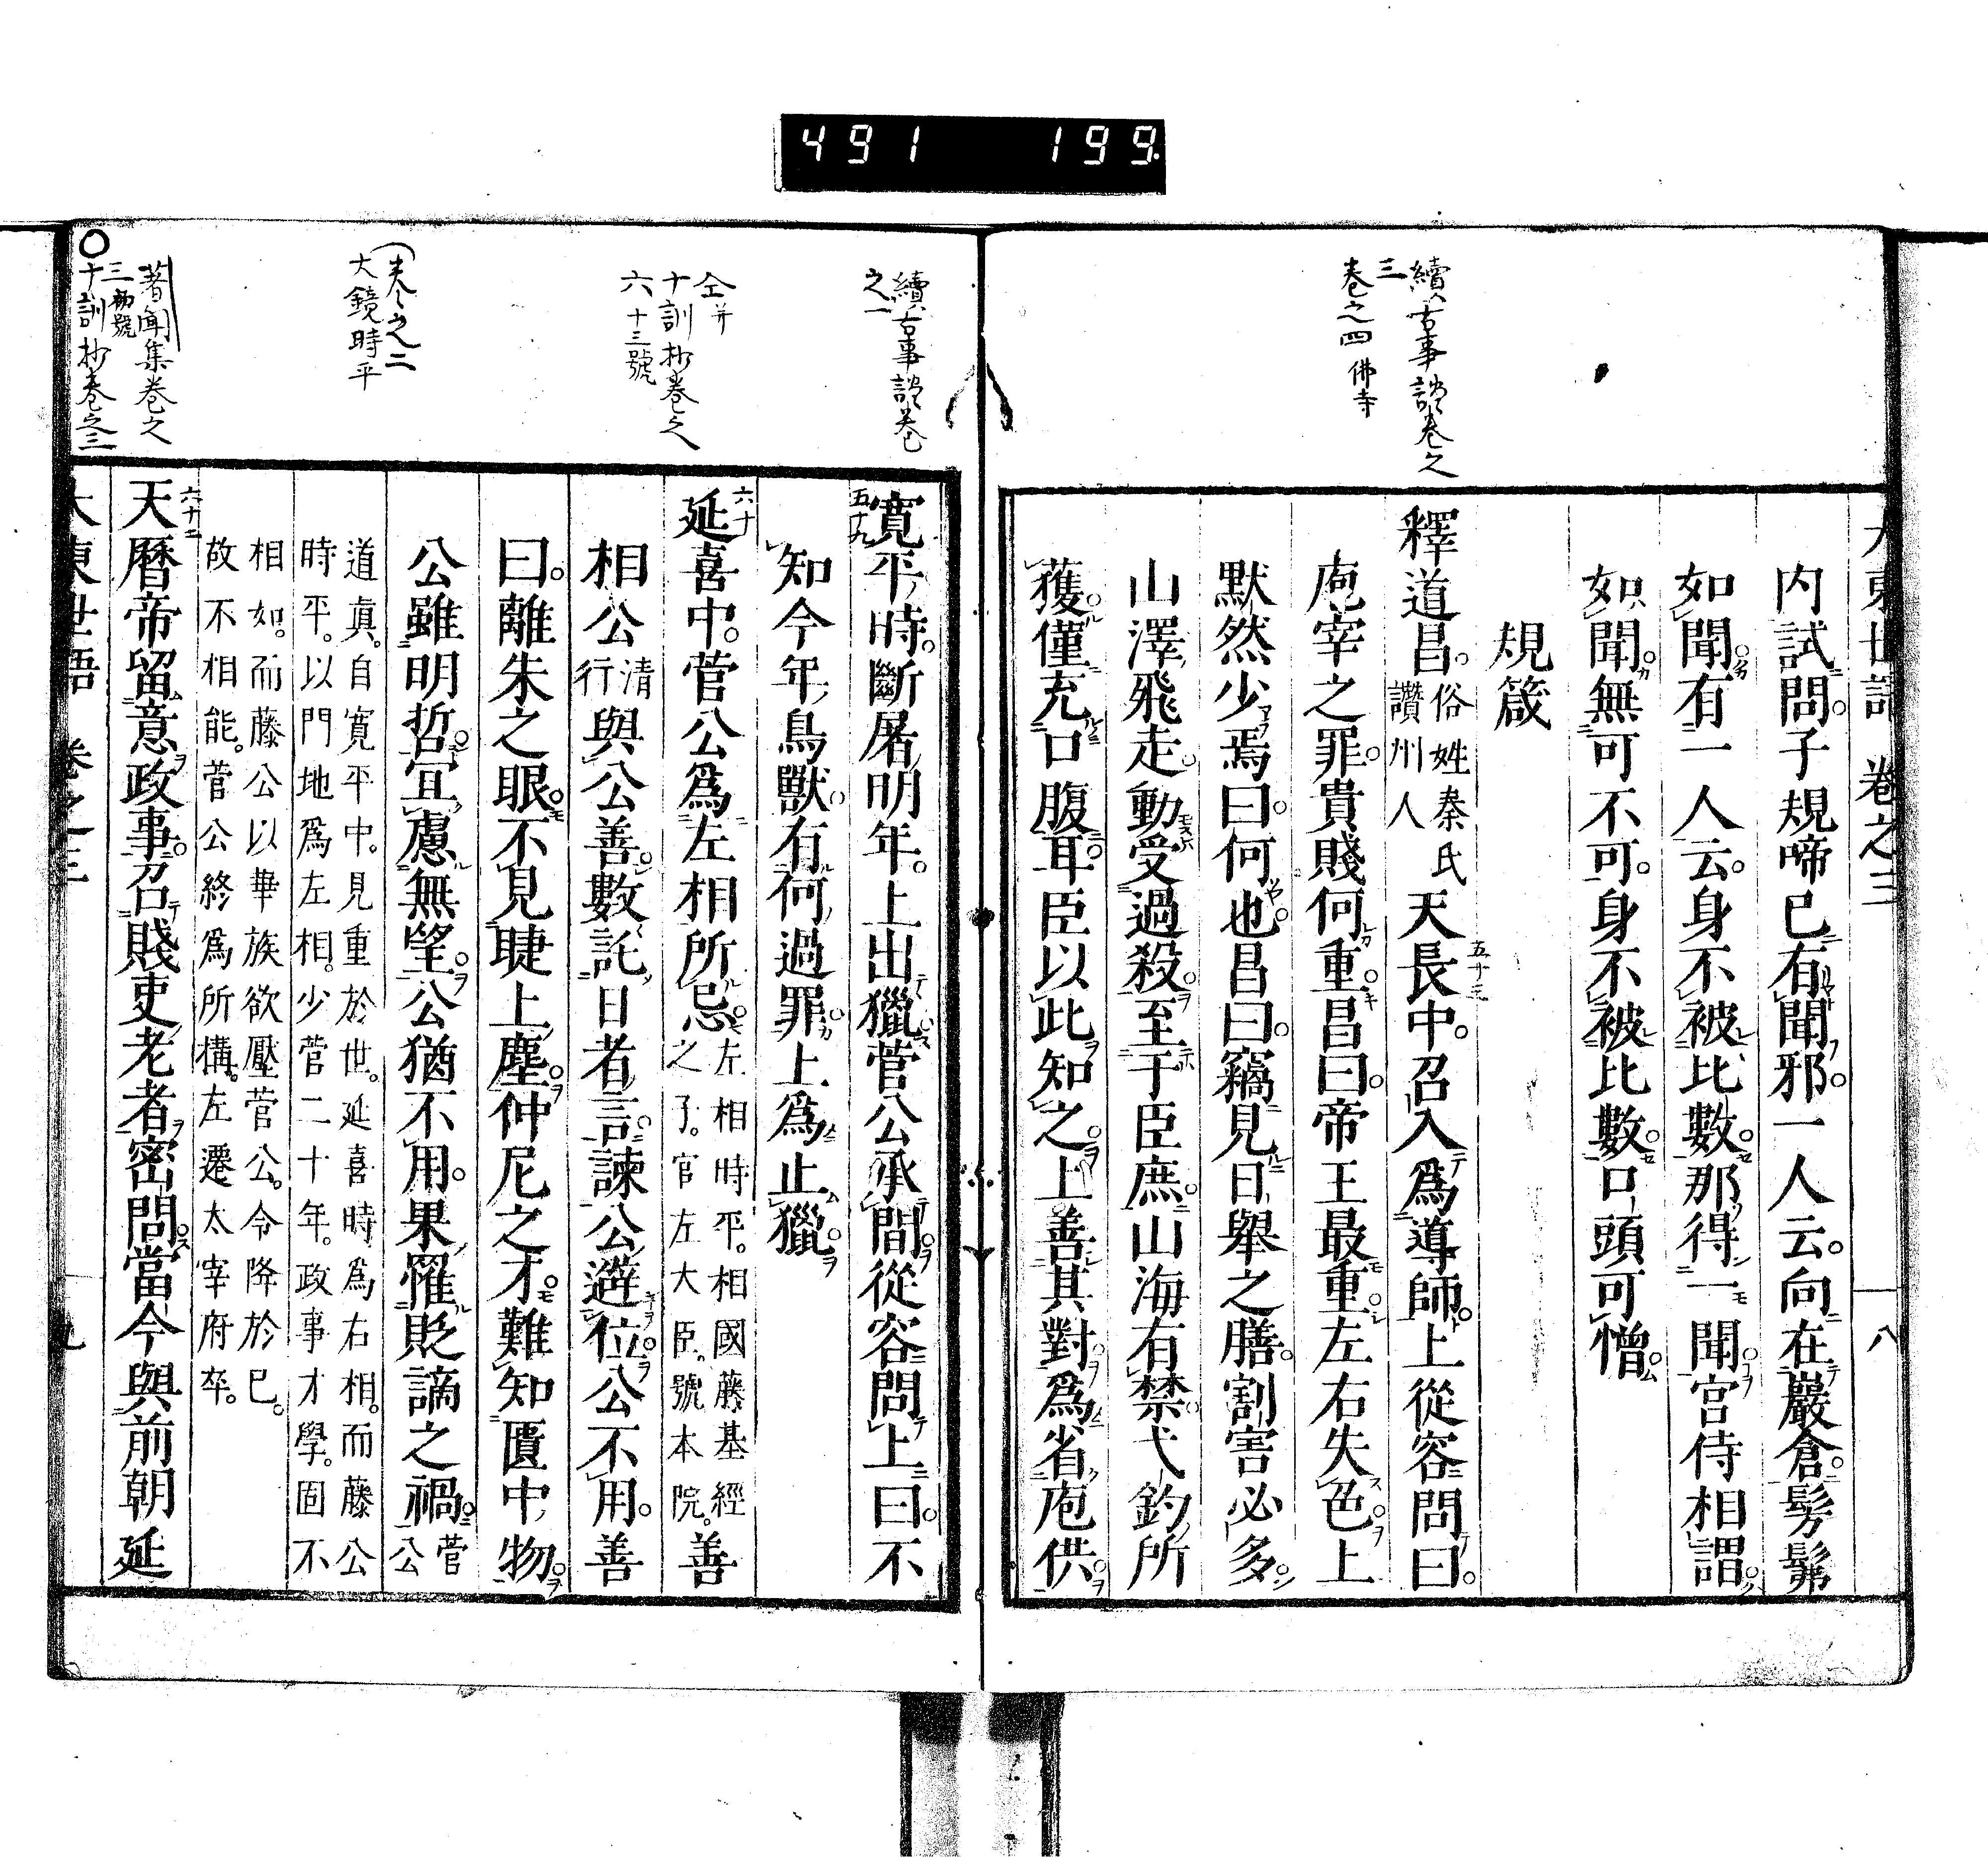 491 199
續古事談卷之
三
卷之四 佛寺
大東世語 卷之三 八
内試問子規啼已有聞邪一人云向在巖倉髣髴
如聞有一人云身不被比數那得一聞宮侍相謂
如聞無可不可身不被比數口頭可憎
規箴
釋道昌俗姓秦氏讚州人天長中召入爲導師上從容問曰
五十八
庖宰之罪貴賤何重昌曰帝王最重左右失色上
默然少焉曰何也昌曰竊見日舉之膳割害必多
山澤飛走動受過殺至于臣庶山海有禁弋釣所
獲僅充口腹耳臣以此知之上善其對爲省庖供
續古事談卷
之一
仝并
十訓抄卷之
六 十三號
(卷之二
大鏡時平
著聞集卷之
三 初號
十訓抄卷之三
五十九
寬平時斷屠明年上出獵菅公承間從容問上曰不
知今年鳥獸有何過罪上爲止獵
六十
延喜中菅公爲左相所忌左相時平相國藤基經之子官左大臣號本院善
相公清行與公善數託日者言諫公避位公不用善
曰離朱之眼不見睫上塵仲尼之才難知匱中物
公雖明哲宜慮無望公猶不用果罹貶謫之禍菅公
道真自寬平中見重於世延喜時爲右相而藤公
時平以門地爲左相少菅二十年政事才學固不
相如而藤公以華族欲壓菅公令降於已
故不相能菅公終爲所搆左遷太宰府卒
六十一
天曆帝留意政事召賤吏老者密問當今與前朝延
大東世語 卷之三 九